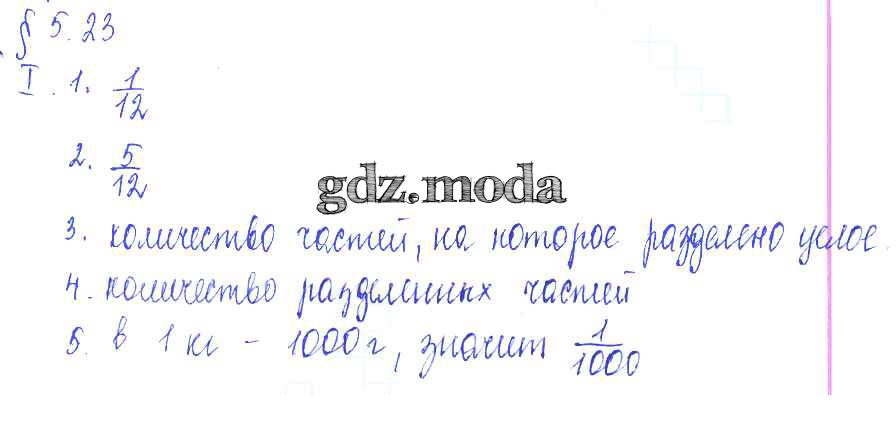 § 5.23
I. 1. 1/12
2. 5/12
gdz.moda
3. количество частей, на которое разделено целое.
4. количество разделенных частей
5. в 1 кг - 1000 г, значит 1/1000